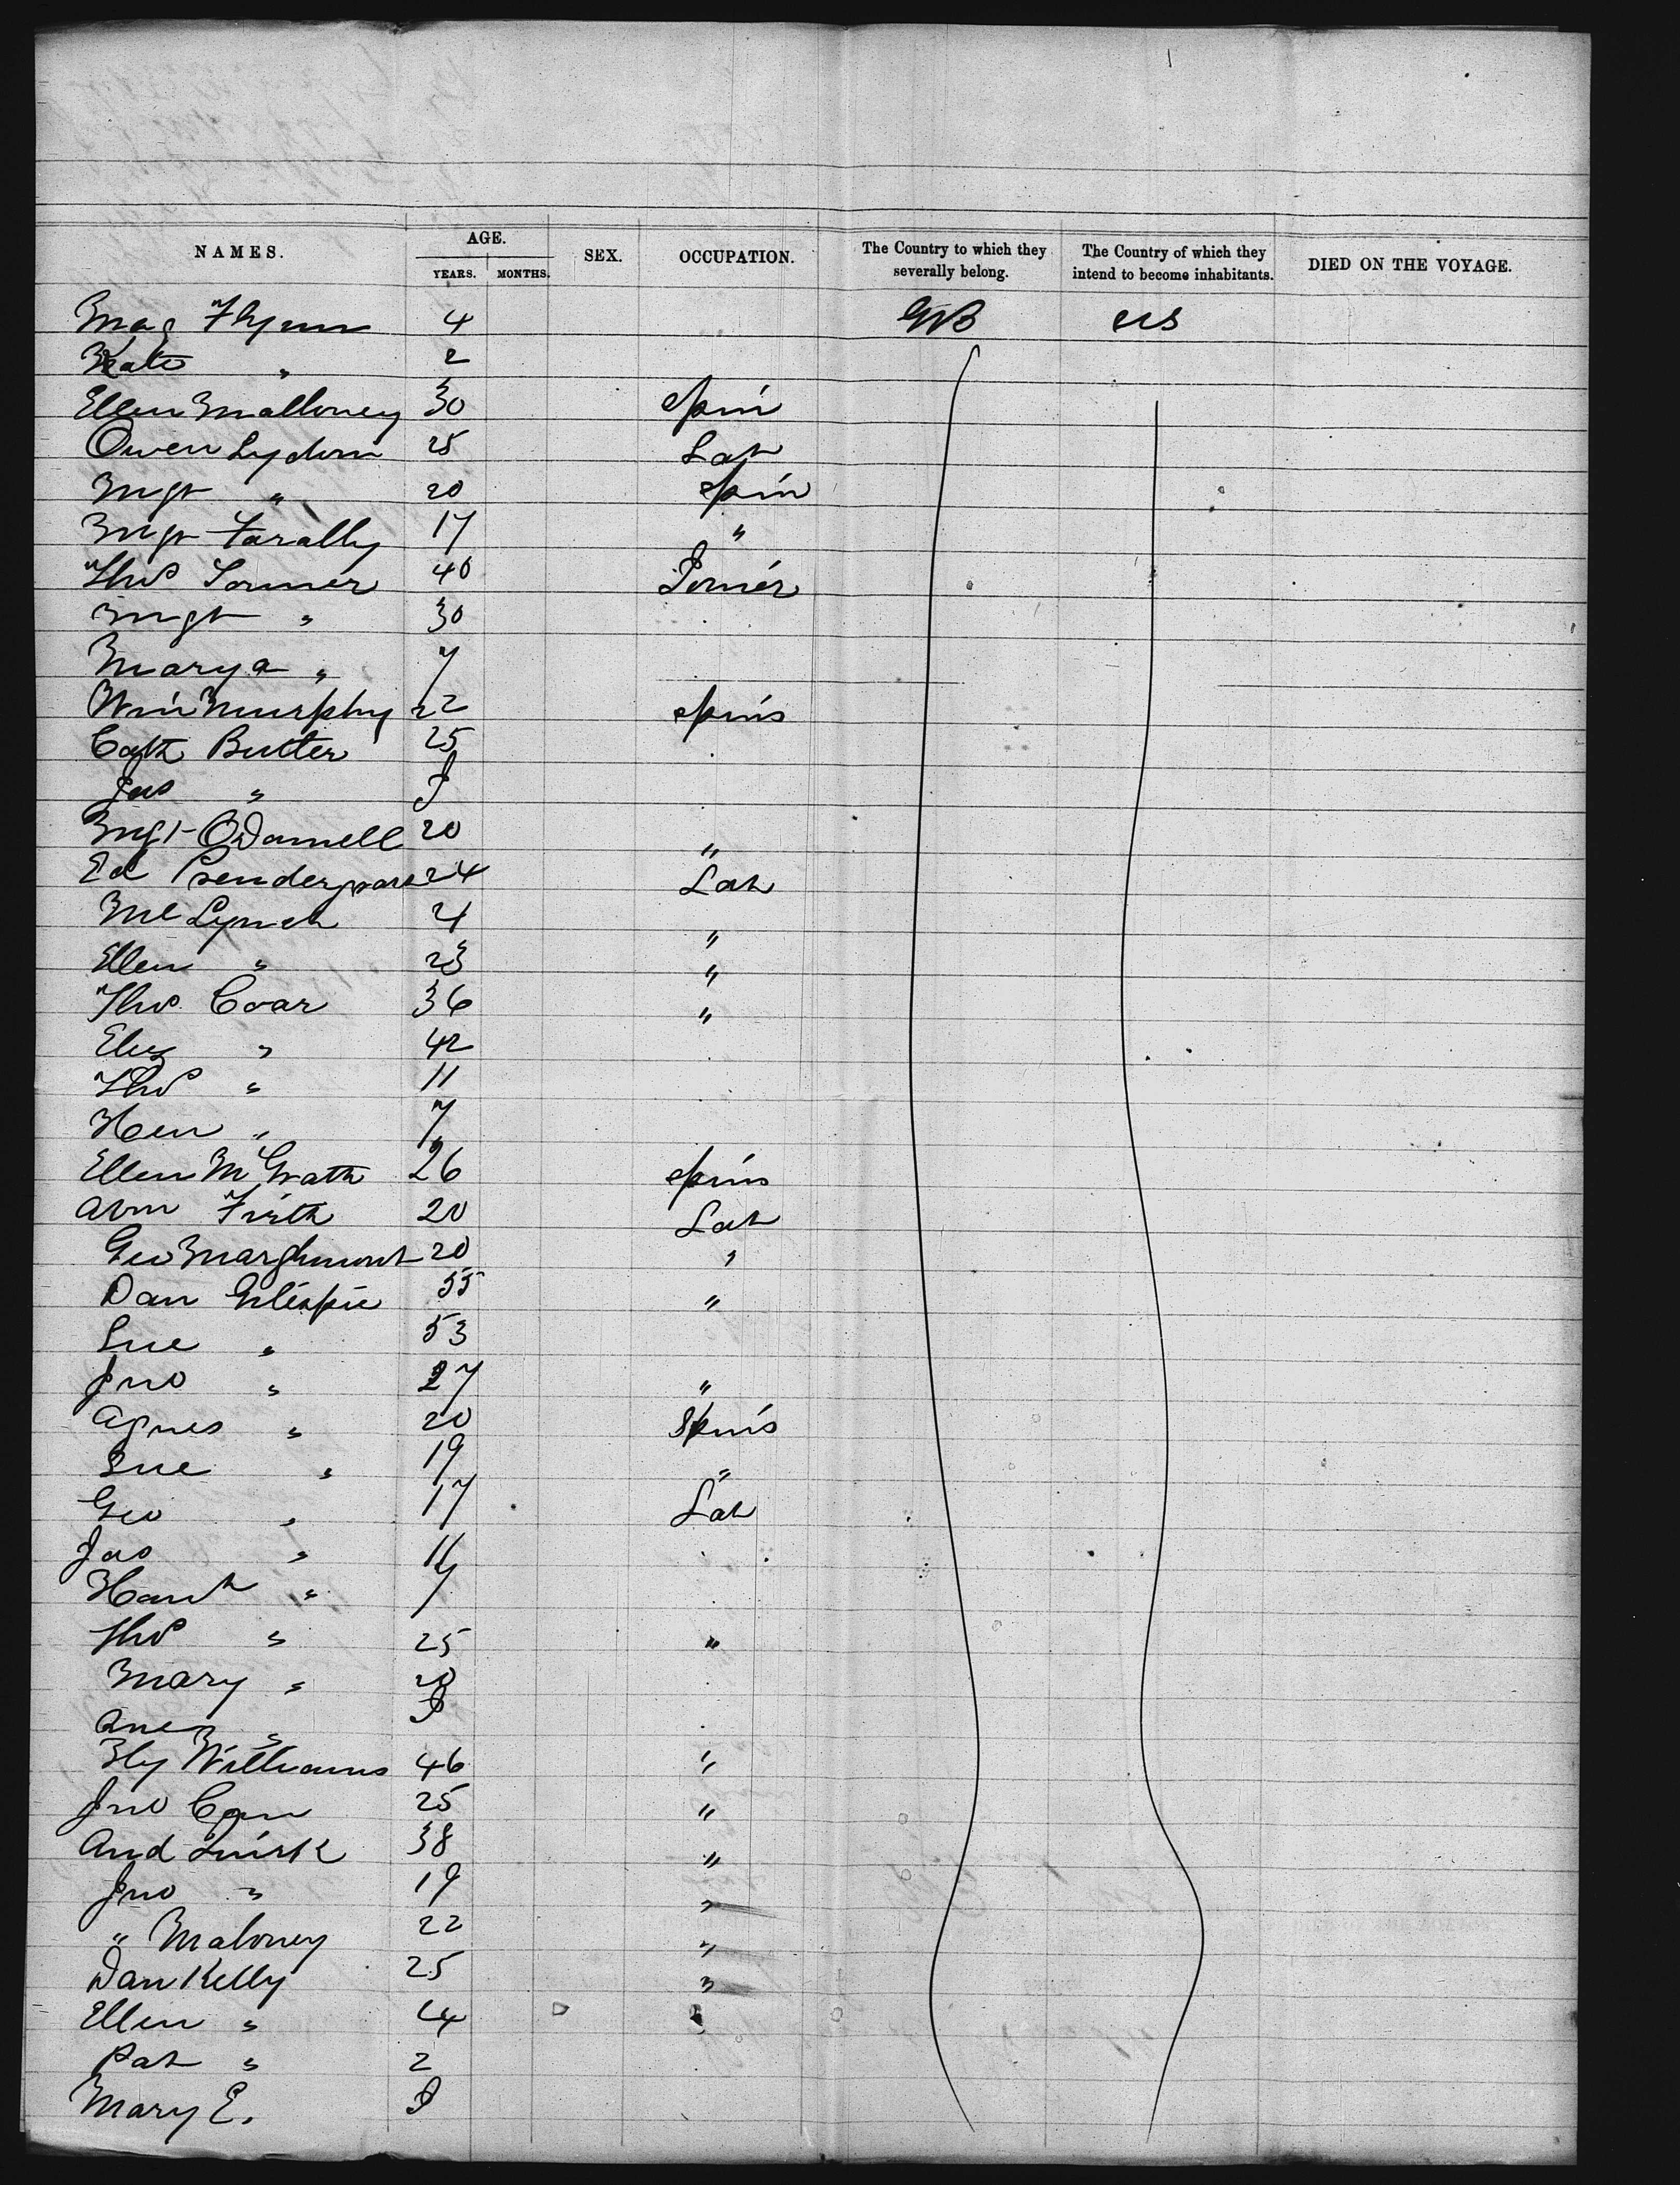 NAMES. AGE. YEARS. MONTHS. SEX. OCCUPATION. The Country to which they severally belong. The Country of which they intend to become inhabitants. DIED ON THE VOYAGE.
Mag Flynn 4 GB US
Kate " 2
Ellen Malloney 30 Spin
Owen Lydon 25 Lab
Mgt " 20 Spin
Mgt Farally 17 "
Thos 40
Mgt " 30
Mary a " 7
Win Murphy 22 Spins
Cath Butler 25
Jas " I
Mgt O'Donnell 20 "
Ed Prendergrass 24 Lab
Ml Lynch 24 "
Ellen " 23 "
Thos Coar 36 "
Eliz " 42
Thos " 11
Hen " 7
Ellen McGrath 26 Spins
Abm Firth 20 Lab
Geo 20 "
Dan Gilespie 55 "
Sue " 53
Jno " 27 "
Agnes " 20 Spins
Sue " 19 "
Geo " 17 Lab
Jas " 11
Hanh " 7
Thos " 25 "
Mary " 20
" I
Hy Williams 46 "
Jno 25 "
And Quirk 38 "
Jno " 19 "
" Maloney 22 "
Dan Kelly 25 "
Ellen " 24
Pat " 2
Mary E. I